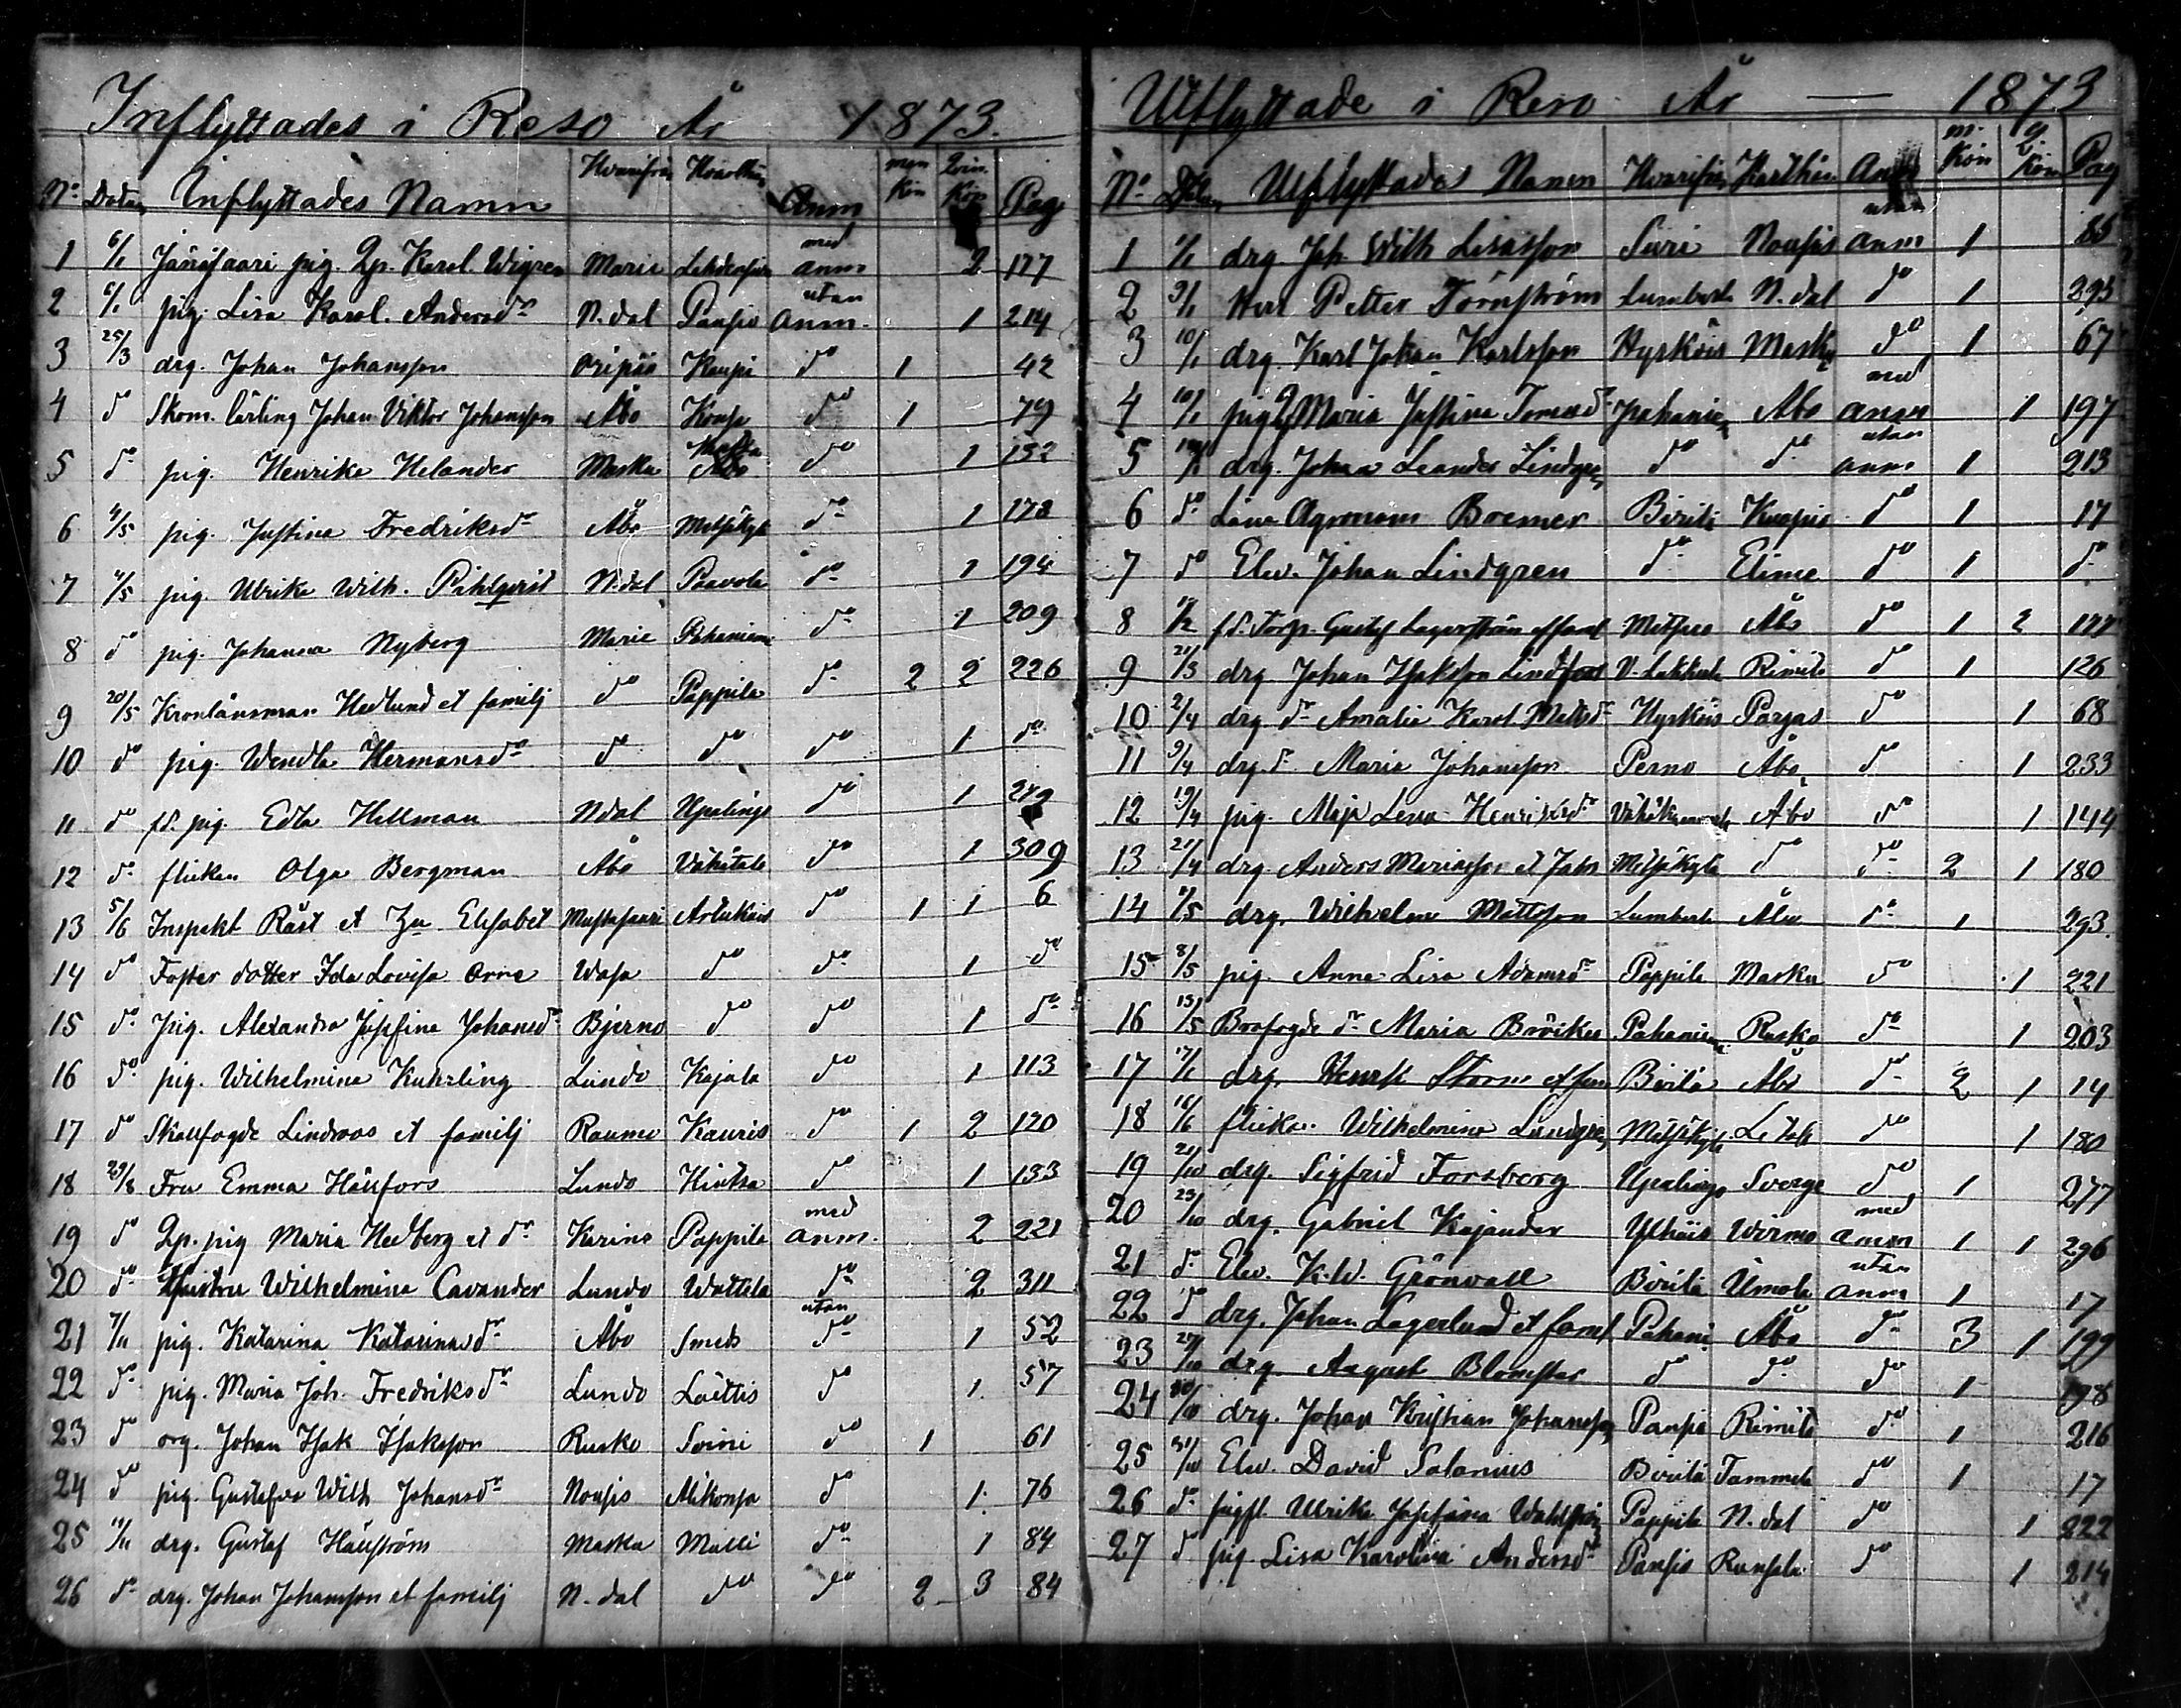 Inflyttades i Reso År 1873.
No Datum Inflyttades Namn Hvarifrån Hvarthän Anm mgn Kön Qvin. Kön Pag
1 6/1 pig. Qp. Karol. Wigren Marie med anm 2 177
2 6/1 pig. Lisa Karol. Andersdr N.dal Pansio utan anm. 1 214
3 25/3 drg. Johan Johansson Oripää Kaupi do 1 42
4 do Skom. lärling Johan Viktor Johansson Åbo do 1 79
5 do pig. Henrika Helander Masku do 1 152
6 4/5 pig. Justina Fredriksdr Åbo Metsäkylä do 1 178
7 4/5 pig. Ulrika Wilh. Pihlqvist N.dal Paavola do 1 194
8 do pig. Johanna Nyberg Marie Pahaniemi do 1 209
9 20/5 Kronlänsman Hedlund et familj do Pappila do 2 2 226
10 do pig. Wendla Hermansdr do do do 1 do
11 do fd. pig. Edla Hellman Ndal Upalinge do 1 249
12 do flickan Olga Bergman Åbo Vähätalo do 1 309
13 5/6 Inspekt Råst et Elisabet Artukais do 1 1 6
14 do Foster dotter Ida Lovisa Orre Wasa do do 1 do
15 do Pig. Alexandra Josefina Johansdr Bjerno do do 1 do
16 do pig. Wilhelmina Kuhrling Lundo Kajala do 1 113
17 do Skallfogde Lindroos et familj Raumo Kauris do 1 2 120
18 29/8 Fru Emma Hällfors Lundo Kintsa do 1 133
19 do Qp. pig Maria Hedberg et dr Karins Pappila med anm. 2 221
20 do Hustru Wilhelmina Cavander Lundo Wättilä do 2 311
21 7/11 pig. Katarina Katarinasdr Åbo Smeds utan do 1 52
22 do pig. Maria Joh. Fredriksdr Lundo Lättis do 1 57
23 do drg. Johan Isak Isaksson Rusko Soini do 1 61
24 do pig. Gustafva Wilh Johansdr Nousis Alikonsa do 1 76
25 11/11 drg. Gustaf Hällström Masku Malli do 1 84
26 do drg. Johan Johansson et familj N.dal do do 2 3 84
Utflyttade i Reso År — 1873
No Datum Utflyttades Namn Hvarifrån Hvarthän Anm m. Kön q. Kön Pag
1 drg. Joh. Wilh Lisasson Suri Nousis utan anm 1 85
2 9/1 Herr Petter Törnström N.dal do 1 295
3 10/1 drg. Karl Johan Karlsson Hyrköis Masku do 1 67
4 10/1 pig Q Maria Justina Tomasdr Pahanie Åbo med anm 1 197
5 drg. Johan Leander Lindgren do do utan anm 1 213
6 do Läne Agronom Boemer Birila Kuopio do 1 17
7 do Elev. Johan Lindgren do Elime do 1 do
8 fd. Torp. Gustaf Lagerström et faml Åbo do 1 2 177
9 21/3 drg Johan Isaksson Lindfors Rimito do 1 126
10 2/4 drg dr Amalia Karol. Matsdr Hyrköis Pargas do 1 68
11 9/4 drg. dr Maria Johansson Perno Åbo do 1 233
12 19/4 pig. Maja Lena Henriksdr Åbo do 1 144
13 21/4 drg. Anders Mariasson et Metsäkylä do do 2 1 180
14 2/5 drg. Wilhelm Mattsson do 1 293.
15 8/5 pig. Anna Lisa Adamsdr Pappila Masku do 1 221
16 13/5 Brofogde dr Maria Pahaniemi Rusko do 1 203
17 drg. Henrik Storm et fam Birila Åbo do 2 1 14
18 16/6 flickan Wilhelmina Lundgren Metsäkylä Letala do 1 180
19 21/10 drg. Sigfrid Forsberg Upalinge Sverge do 1 277
20 23/10 drg. Gabriel Kajander Ylhäis Wirmo med anm 1 1 296
21 do Elev. K.W. Grönvall Birila Umola utan anm 1 17
22 do drg. Johan Lagerlund et faml Pahani Åbo do 3 1 199
23 29/10 drg. August Blomster do do do 1 198
24 30/10 drg. Johan Kristian Johansson Panso Rimito do 1 216
25 31/10 Elev. David Salonius Birila Tammela do 1 17
26 do Ulrika Josefina Wahlström Pappila N.dal do 1 222
27 do pig. Lisa Karolina Andersdr Pansio Runsala do 1 214